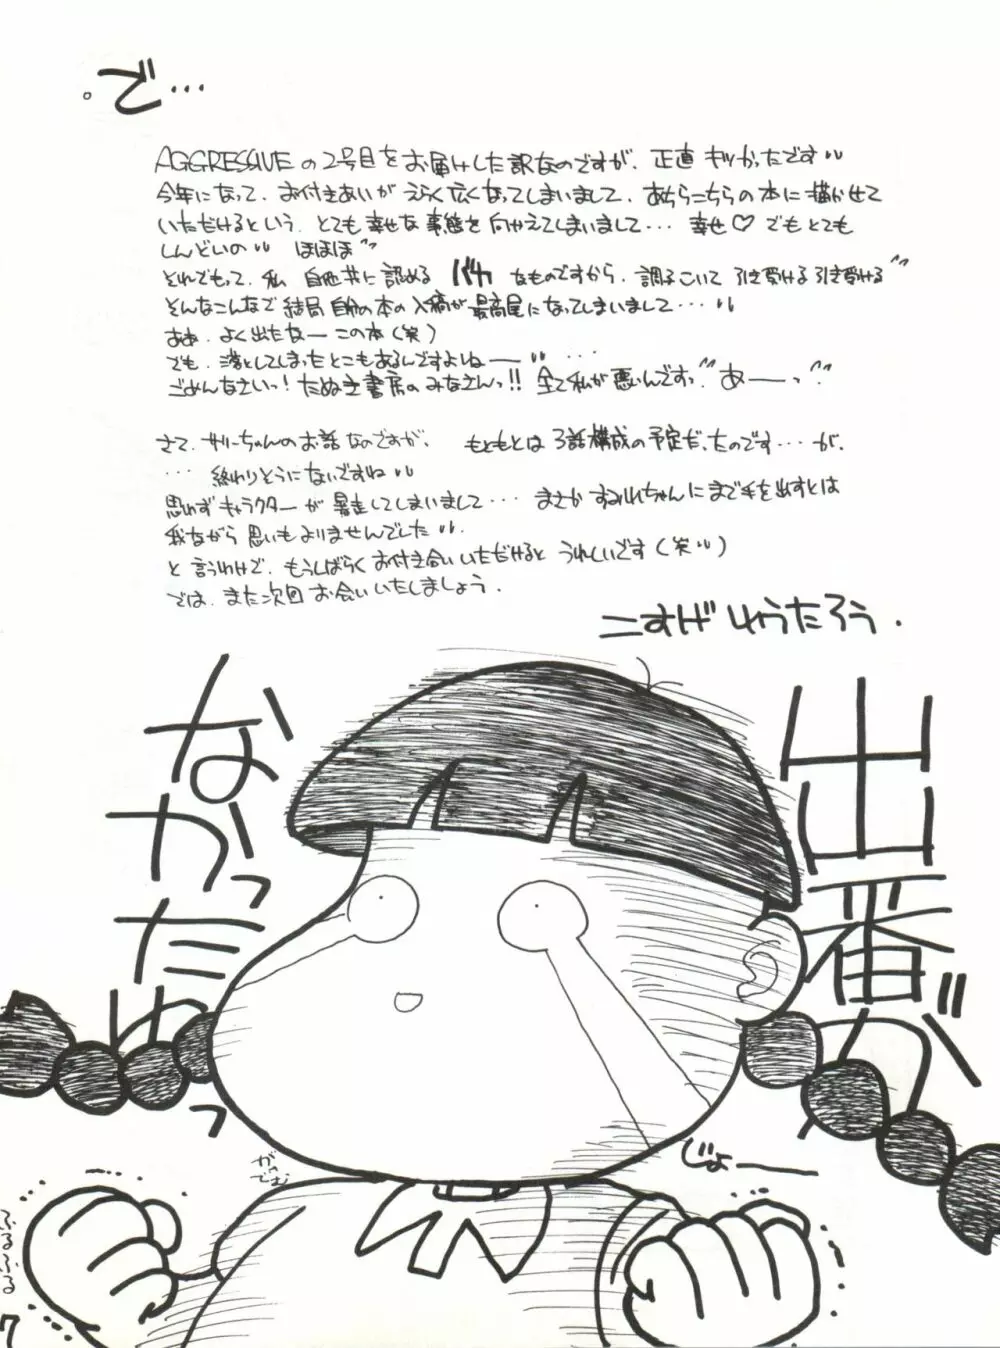 。で…
AGGRESSIVEの2号目をお届けした訳なのですが、正直キツかったです
今年になって、お付きあいがえらく広くなってしまいまして、あちらこちらの本に描かせて
いただけるという、とても幸せな事態を向かえてしまいまして… 幸せ♡でもとても
しんどいの ほほほ
それでもって、私 自他共に認めるバカなものですから、調子こいて引き受ける引き受ける
そんなこんなで結局自分の本の入稿が最高尾になってしまいまして…
ああ、よく出たなーこの本(笑)
でも、落としてしまったとこもあるんですよねー …
ごめんなさいっ！たぬき書房のみなさんっ!!全て私が悪いんですっ "あーっ"
さて、サリーちゃんのお話なのですが、 もともとは3話構成の予定だったのです…が、
… 終わりそうにないですね
思わずキャラクターが暴走してしまいまして… まさかすみれちゃんにまで手を出すとは
我ながら思いもよりませんでした
と言うわけで、もうしばらくお付き合いいただけるとうれしいです(笑)
では、また次回お会いいたしましょう。
こすげしゅうたろう.
出番が
なかったゆっ
がってむ
じょー
ふるふる
7